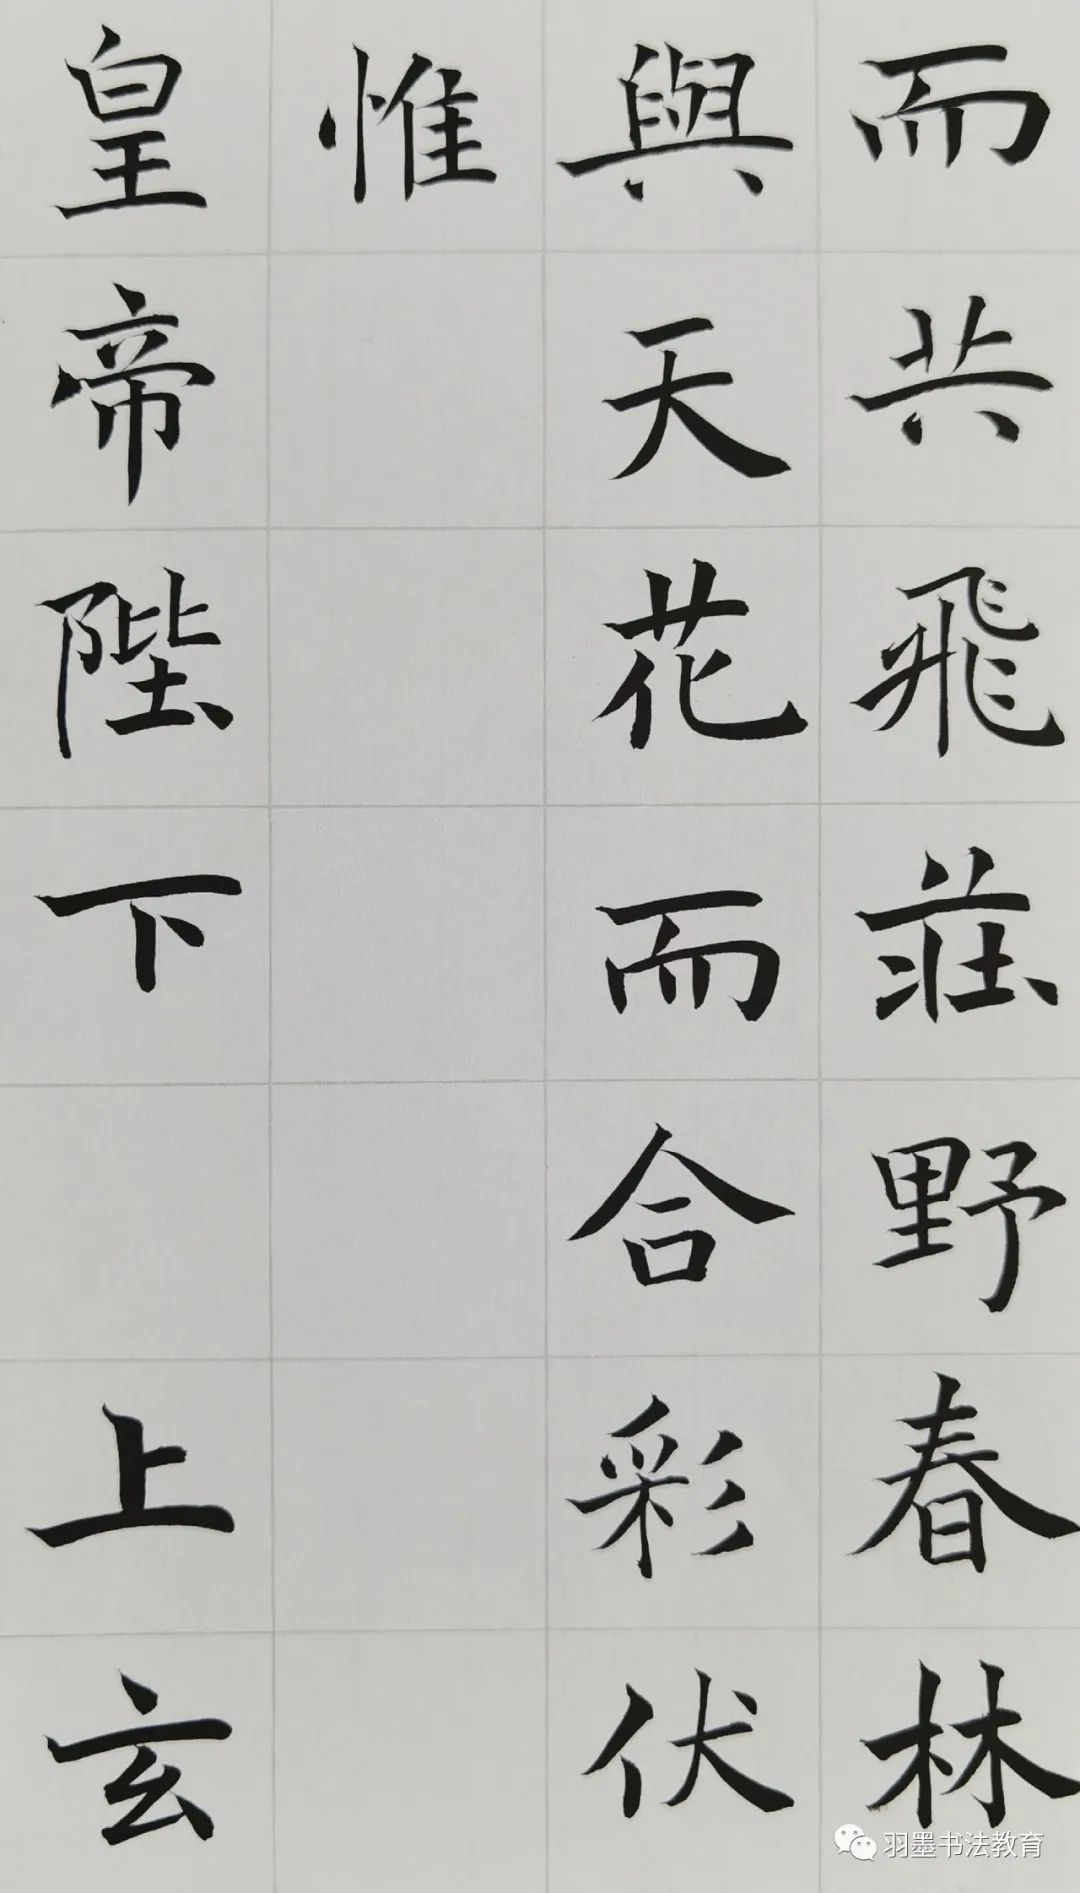 而共飛莊野春林
與天花而合彩伏
惟
皇帝陛下上玄
羽墨书法教育